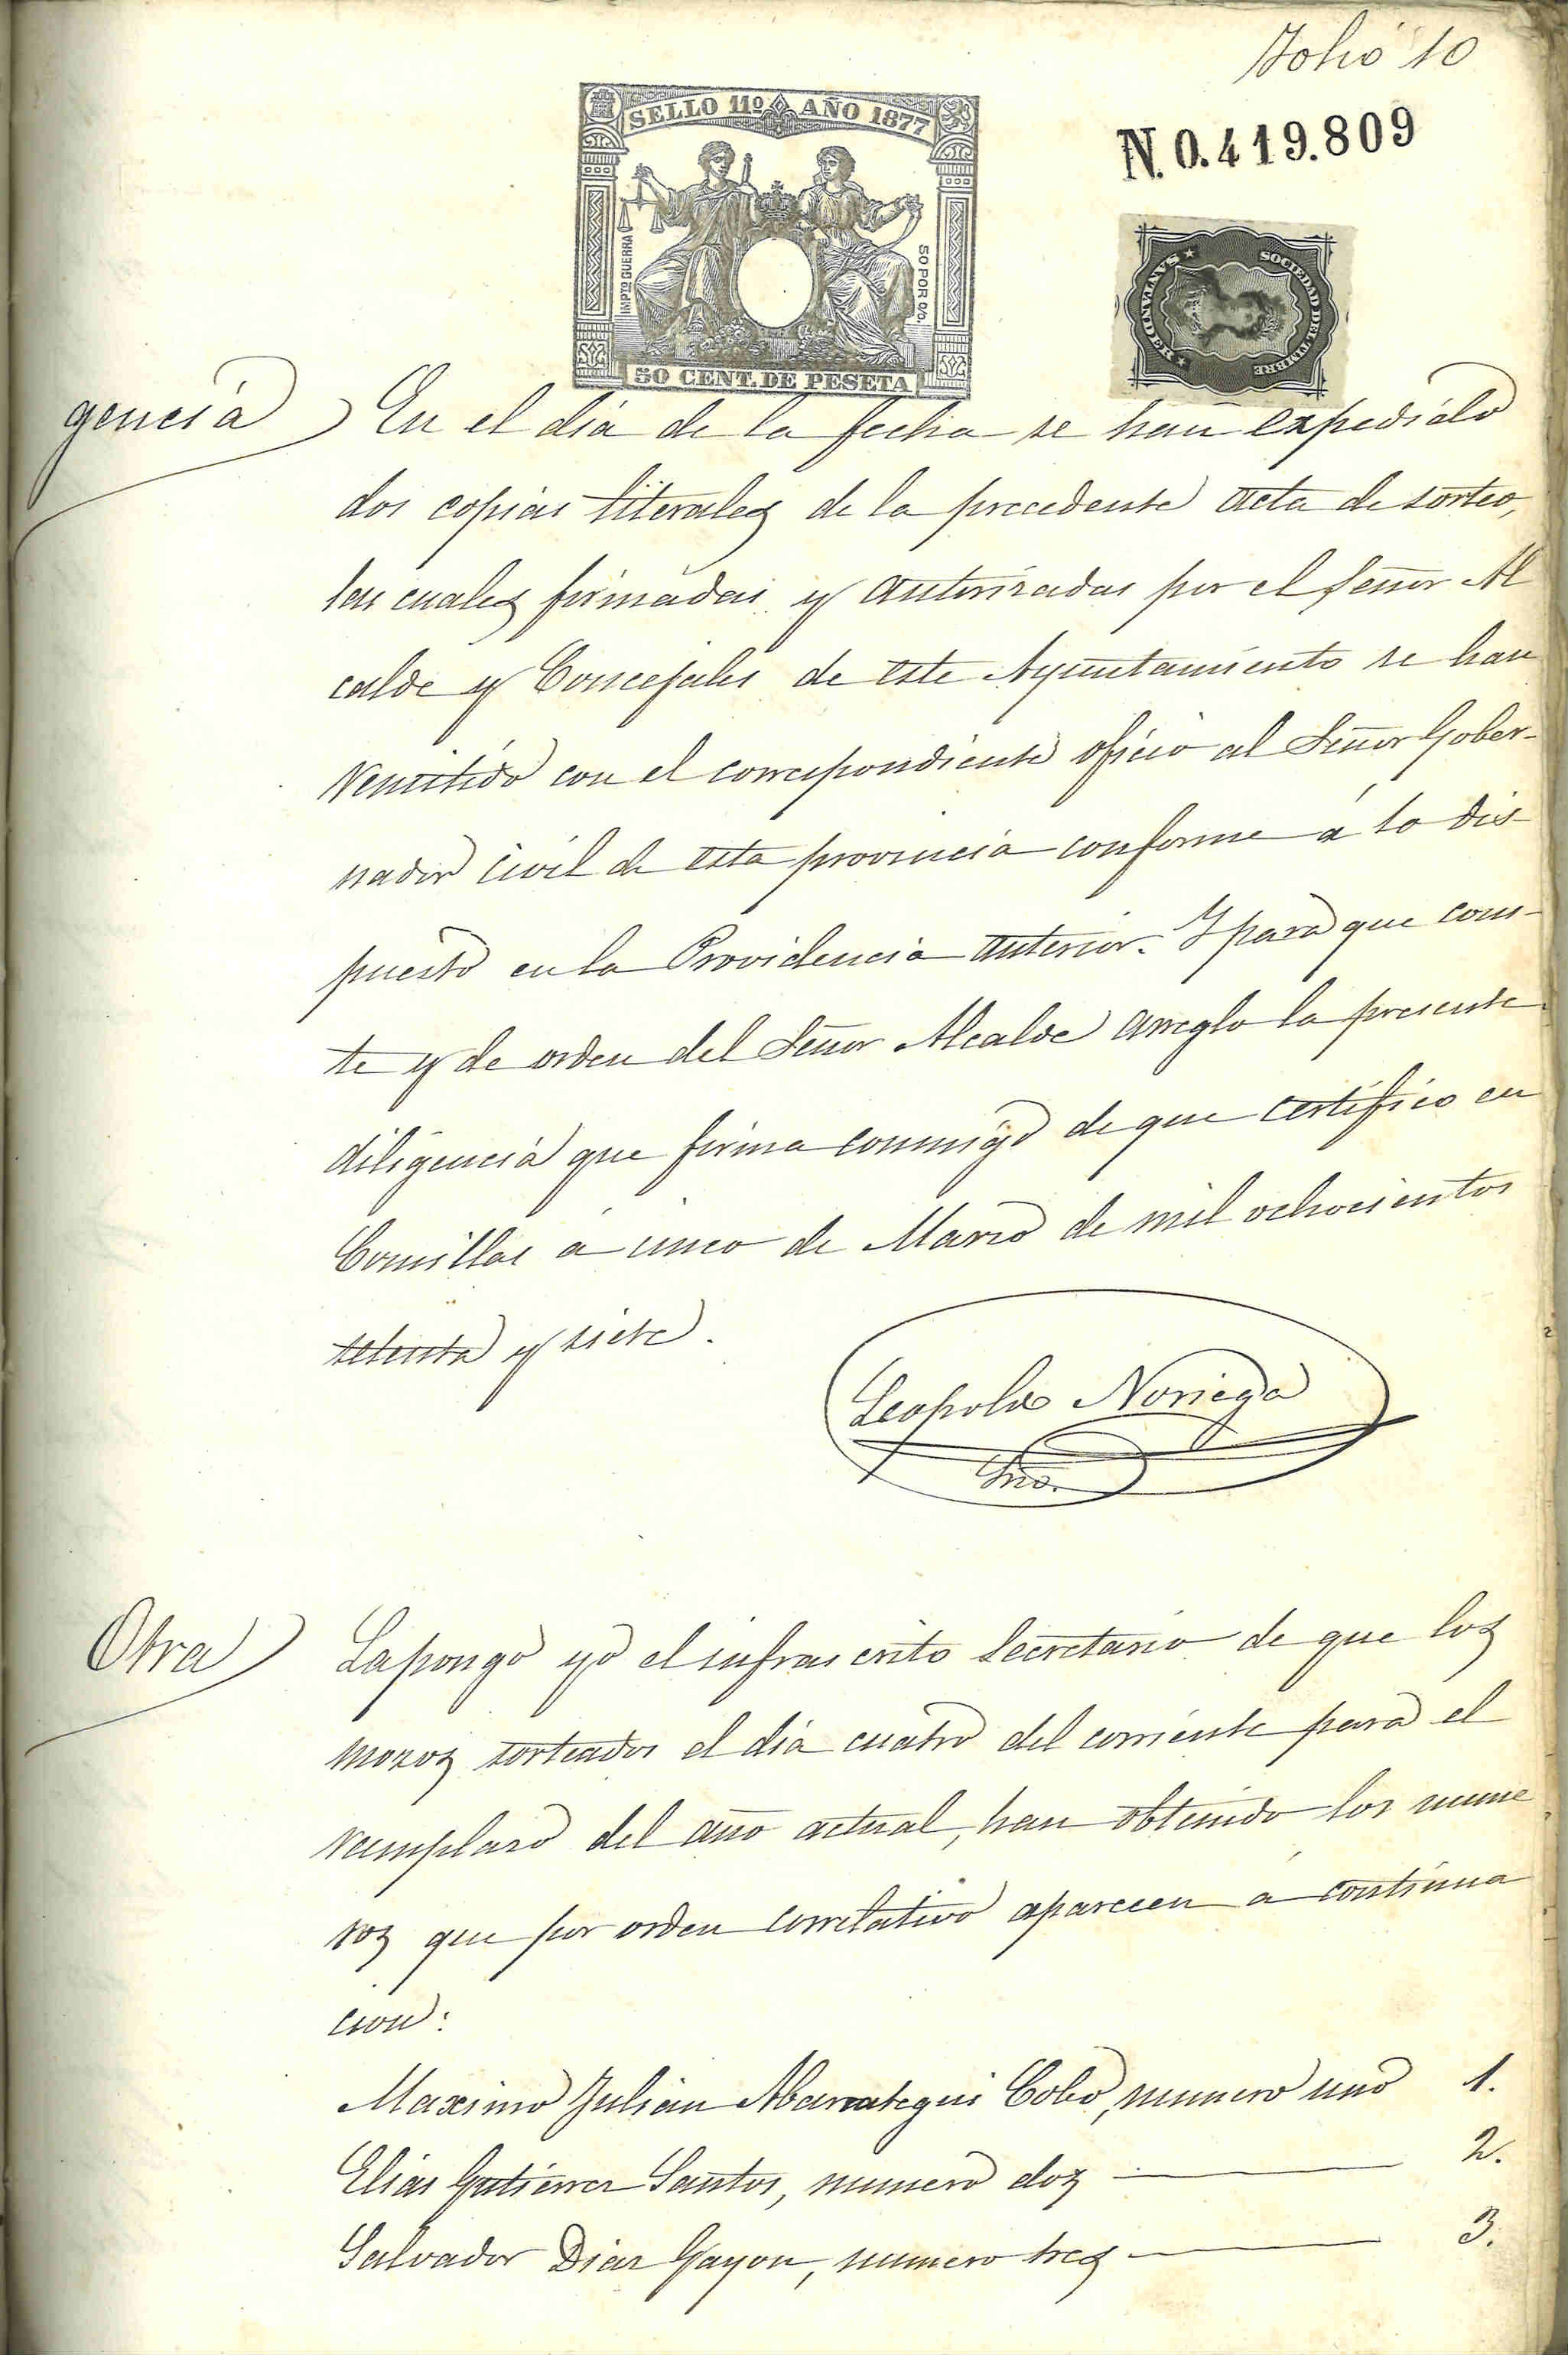 Folio 10
SELLO 11º AÑO 1877
N. 0.419.809
IMPTO GUERRA
50 POR 0/0.
SOCIEDAD DEL TIMBRE
SANTANDER
50 CENT. DE PESETA
gencia En el dia de la fecha se han expedido
dos copias literales de la precedente acta de sorteo,
las cuales firmadas y autorizadas por el Señor Al
calde y Concejales de este Ayuntamiento se han
remitido con el correspondiente oficio al Señor Gober-
nador Civil de esta provincia conforme á lo dis-
puesto en la Providencia anterior. Y para que cons-
te y de orden del Señor Alcalde arreglo la presente
diligencia que firma conmigo de que certifico en
Comillas á cinco de Marzo de mil ochocientos
setenta y siete.
Leopoldo Noriega
Srio.
Otra La pongo yo el infrascrito Secretario de que los
mozos sorteados el dia cuatro del corriente para el
reemplazo del año actual, han obtenido los nume
ros que por orden correlativo aparecen á continua
cion:
Maximo Julian Abarrategui Cobo, numero uno 1.
Elias Gutierrez Santos, numero dos 2.
Salvador Diaz Gayon, numero tres 3.